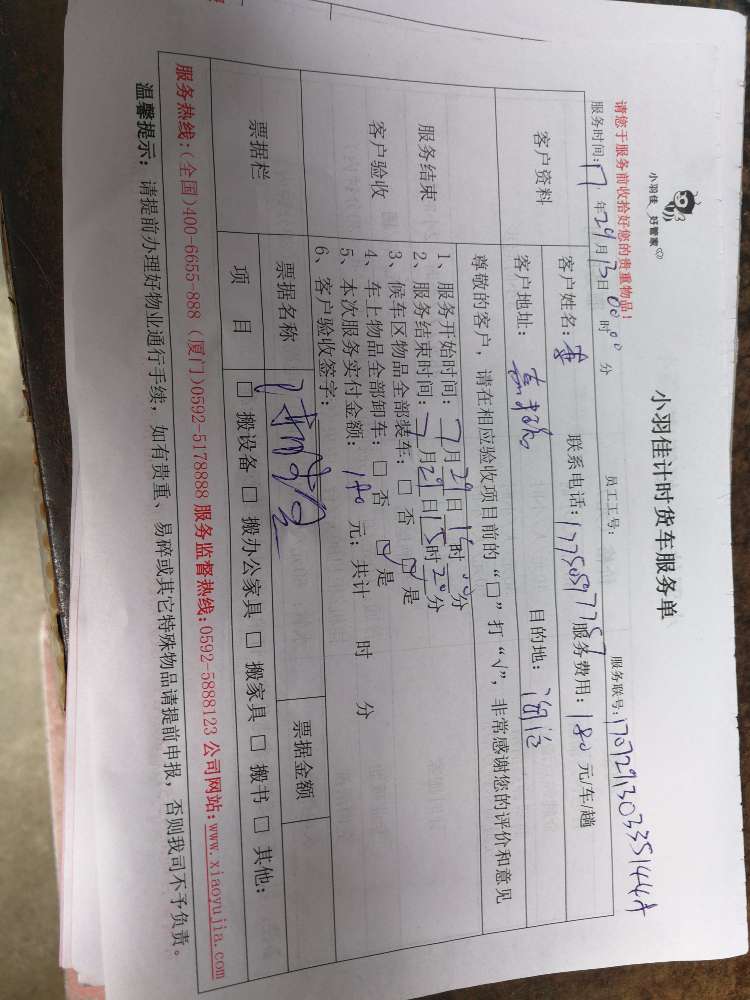 小羽佳 好管家
小羽佳计时货车服务单
请您于服务前收拾好您的贵重物品！
员工工号：
服务联号：170729130335144A
服务时间：17年29月13日00:00时 分
客户资料
客户姓名：
联系电话：17750597757
服务费用：180元/车/趟
客户地址：
目的地：
服务结束
客户验收
尊敬的客户，请在相应验收项目前的“□”打“√”，非常感谢您的评价和意见
1、服务开始时间：7月29日14时00分
2、服务结束时间：7月29日15时20分
3、候车区物品全部装车：□ 否 ☑ 是
4、车上物品全部卸车：□ 否 ☑ 是
5、本次服务实付金额：180元；共计 时 分
6、客户验收签字：
票据栏
票据名称
票据金额
项 目
□ 搬设备 □ 搬办公家具 □ 搬家具 □ 搬书 □ 其他：
服务热线：(全国)400-6655-888 (厦门)0592-5178888 服务监督热线：0592-5888123 公司网站：www.xiaoyujia.com
温馨提示：请提前办理好物业通行手续，如有贵重、易碎或其它特殊物品请提前申报，否则我司不予负责。